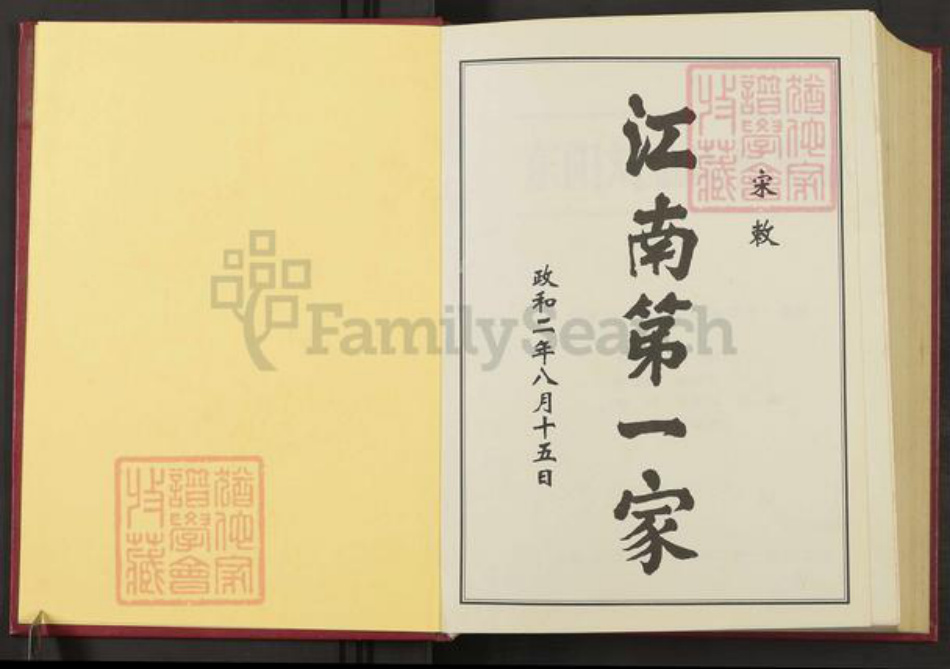 宋敕
江南第一家
政和二年八月十五日
FamilySearch
猶他家
譜學會
收藏
猶他家
譜學會
收藏